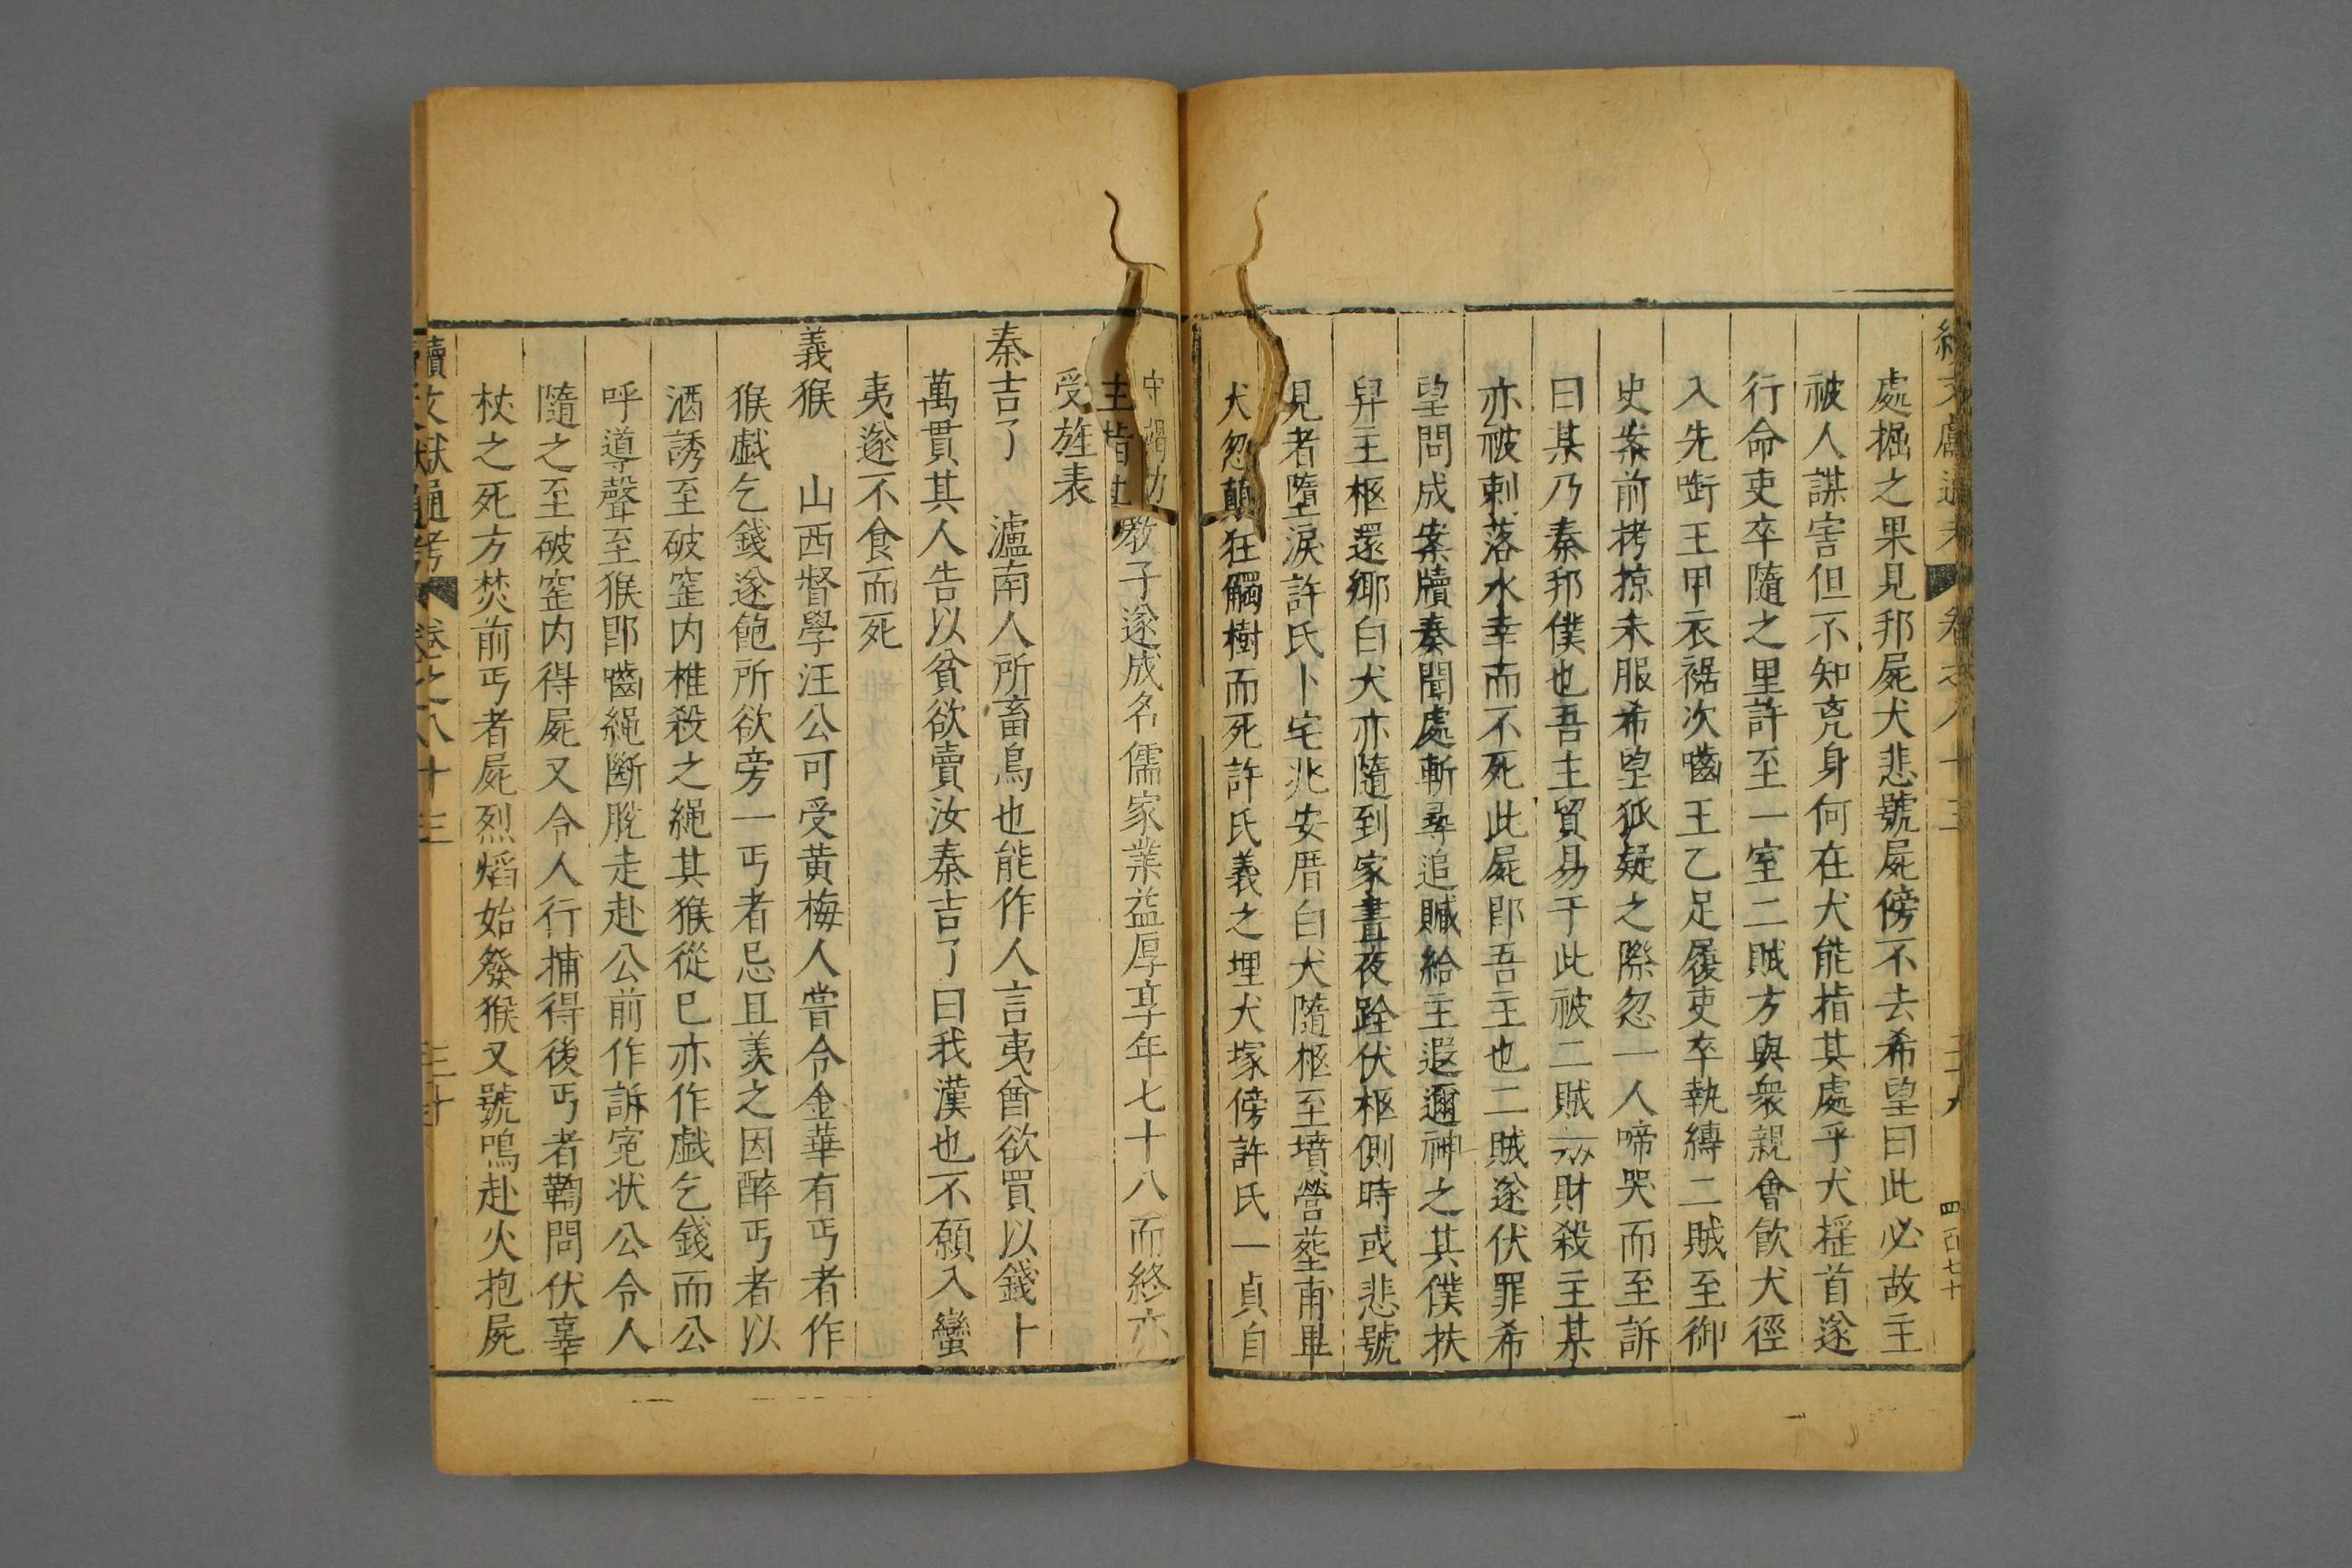 續文獻通考 卷之八十三 三十九 四百七十
處掘之果見邦屍犬悲號屍傍不去希望曰此必故主
被人謀害但不知兇身何在犬能指其處乎犬搖首遂
行命吏卒隨之里許至一室二賊方與衆親會飲犬徑
入先啣王甲衣裾次嚙王乙足履吏卒執縛二賊至御
史案前拷掠未服希望狐疑之際忽一人啼哭而至訴
曰某乃秦邦僕也吾主貿易于此被二賊刼財殺主某
亦被刺落水幸而不死此屍卽吾主也二賊遂伏罪希
望問成案牘奏聞處斬尋追贓給主遐邇神之其僕扶
舁主柩還鄉白犬亦隨到家晝夜跧伏柩側時或悲號
見者墮淚許氏卜宅兆安厝白犬隨柩至墳營塟甫畢
犬忽顛狂觸樹而死許氏義之埋犬塚傍許氏一貞自
守 教子遂成名儒家業益厚享年七十八而終亦
受旌表
秦吉了 瀘南人所畜鳥也能作人言夷酋欲買以錢十
萬貫其人告以貧欲賣汝秦吉了曰我漢也不願入蠻
夷遂不食而死
義猴 山西督學汪公可受黄梅人嘗令金華有丐者作
猴戱乞錢遂飽所欲旁一丐者忌且羡之因醉丐者以
酒誘至破窑内椎殺之繩其猴從已亦作戱乞錢而公
呼導聲至猴卽嚙繩斷脫走赴公前作訴寃状公令人
隨之至破窑内得屍又令人行捕得後丐者鞫問伏辜
杖之死方焚前丐者屍烈熖始發猴又號鳴赴火抱屍
續文獻通考 卷之八十三 三十